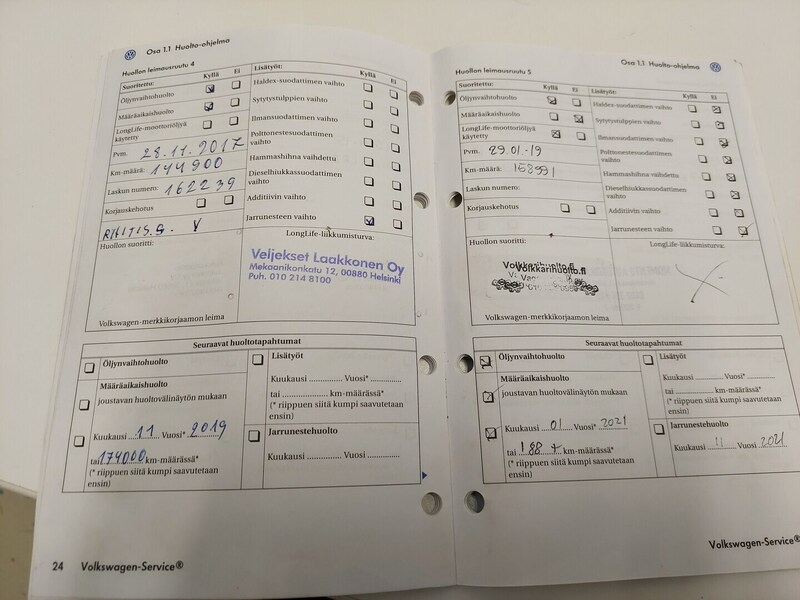 Osa 1.1 Huolto-ohjelma
Huollon leimausruutu 4
Suoritettu: Kyllä Ei
Öljynvaihtohuolto
Määräaikaishuolto
LongLife-moottoriöljyä
käytetty
Pvm. 28.11.2017
Km-määrä: 144900
Laskun numero: 162239
Korjauskehotus
Huollon suoritti:
Volkswagen-merkkikorjaamon leima
Lisätyöt: Kyllä Ei
Haldex-suodattimen vaihto
Sytytystulppien vaihto
Ilmansuodattimen vaihto
Polttonestesuodattimen
vaihto
Hammashihna vaihdettu
Dieselhiukkassuodattimen
vaihto
Additiivin vaihto
Jarrunesteen vaihto
LongLife-liikkumisturva:
Veljekset Laakkonen Oy
Mekaanikonkatu 12, 00880 Helsinki
Puh. 010 214 8100
Seuraavat huoltotapahtumat
Öljynvaihtohuolto
Määräaikaishuolto
joustavan huoltovälinäytön mukaan
Kuukausi 11 Vuosi* 2019
tai 174000 km-määrässä*
(* riippuen siitä kumpi saavutetaan
ensin)
Lisätyöt
Kuukausi .............. Vuosi* ..............
tai .................. km-määrässä*
(* riippuen siitä kumpi saavutetaan
ensin)
Jarrunestehuolto
Kuukausi .............. Vuosi ..............
24 Volkswagen-Service®
Osa 1.1 Huolto-ohjelma
Huollon leimausruutu 5
Suoritettu: Kyllä Ei
Öljynvaihtohuolto
Määräaikaishuolto
LongLife-moottoriöljyä
käytetty
Pvm. 29.01-19
Km-määrä: 168991
Laskun numero:
Korjauskehotus
Huollon suoritti:
Volkkarihuolto.fi
Volkswagen-merkkikorjaamon leima
Lisätyöt: Kyllä Ei
Haldex-suodattimen vaihto
Sytytystulppien vaihto
Ilmansuodattimen vaihto
Polttonestesuodattimen
vaihto
Hammashihna vaihdettu
Dieselhiukkassuodattimen
vaihto
Additiivin vaihto
Jarrunesteen vaihto
LongLife-liikkumisturva:
Seuraavat huoltotapahtumat
Öljynvaihtohuolto
Määräaikaishuolto
joustavan huoltovälinäytön mukaan
Kuukausi 01 Vuosi* 2021
tai 188 km-määrässä*
(* riippuen siitä kumpi saavutetaan
ensin)
Lisätyöt
Kuukausi .............. Vuosi* ..............
tai .................. km-määrässä*
(* riippuen siitä kumpi saavutetaan
ensin)
Jarrunestehuolto
Kuukausi 11 Vuosi 2021
Volkswagen-Service®